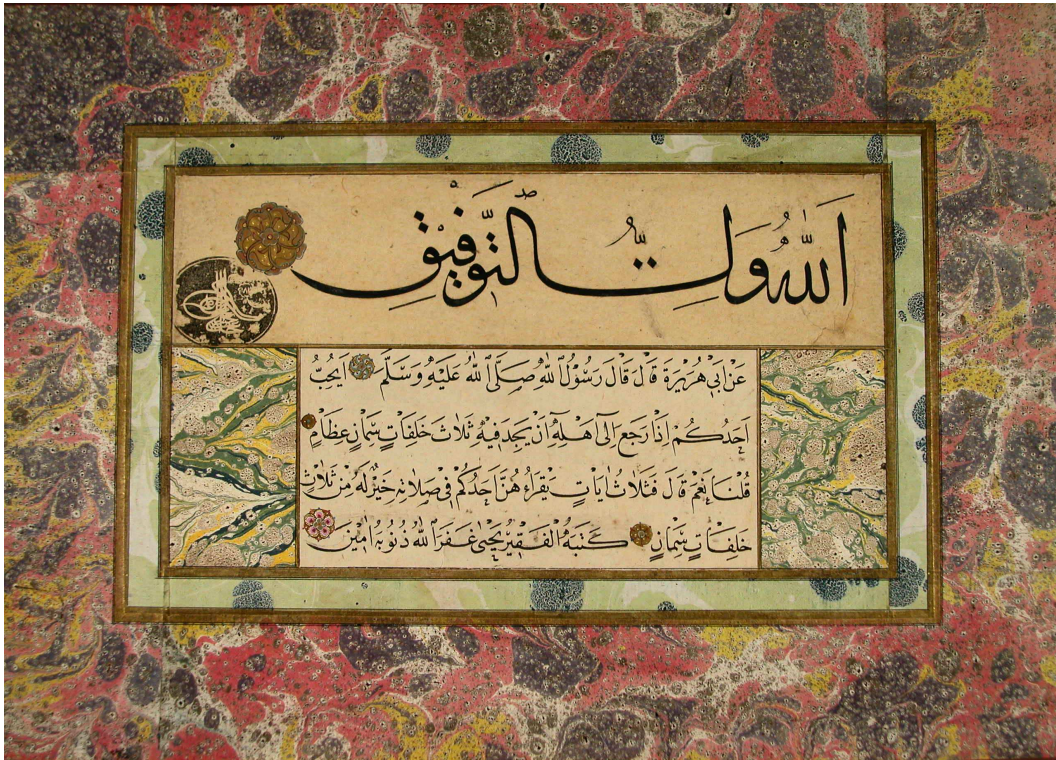 اَللّٰهُ وَلِيُّ التَّوْفِيْقِ
عَنْ اَبٖي هُرَيْرَةَ قَالَ قَالَ رَسُوْلُ اللّٰهِ صَلَّى اللّٰهُ عَلَيْهِ وَسَلَّمَ اَيُحِبُّ
اَحَدُكُمْ اِذَا رَجَعَ اِلٰى اَهْلِهٖ اَنْ يَجِدَ فٖيْهِ ثَلَاثَ خَلِفَاتٍ سِمَانٍ عِظَامٍ
قُلْنَا نَعَمْ قَالَ فَثَلَاثُ اٰيَاتٍ يَقْرَاُهُنَّ اَحَدُكُمْ فٖي صَلَاتِهٖ خَيْرٌ لَهُ مِنْ ثَلَاثِ
خَلِفَاتٍ سِمَانٍ كَتَبَهُ الْفَقٖيْرُ يَحْيٰى غَفَرَ اللّٰهُ ذُنُوْبَهُ اٰمٖيْنَ